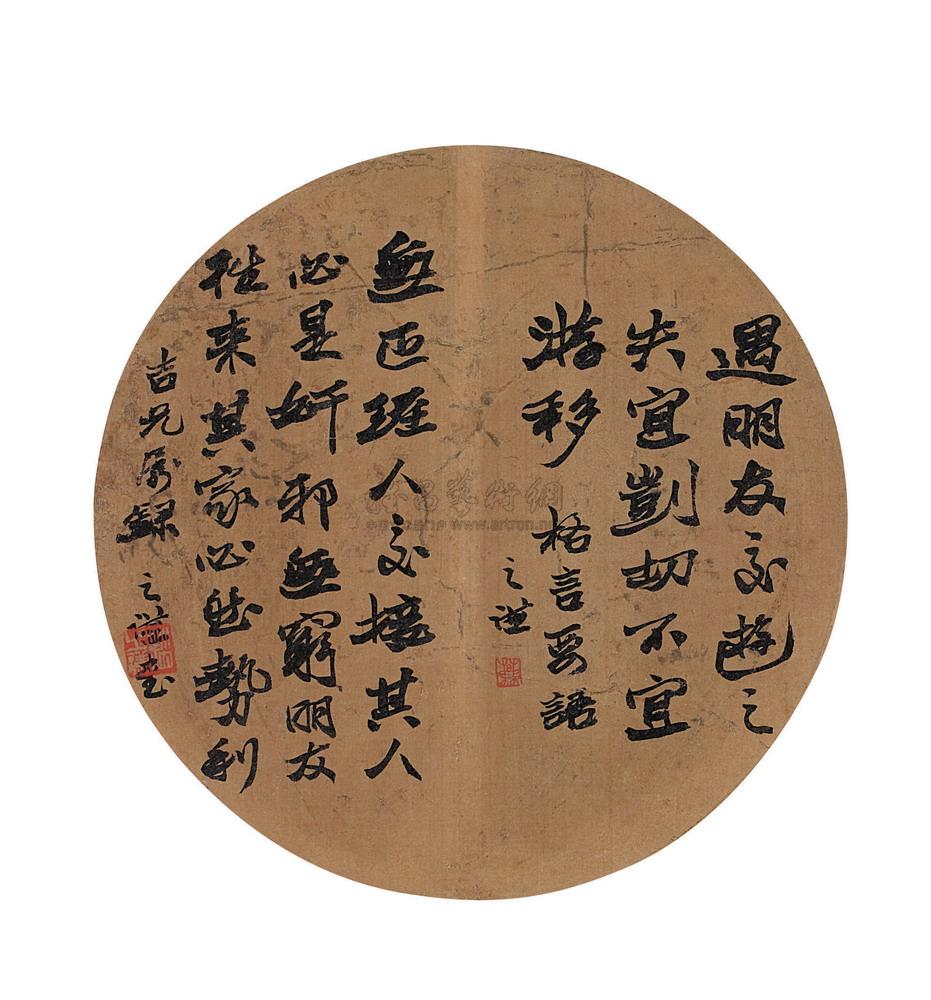 遇朋友交遊之
失宜剴切不宜
游移
格言要語
之謙
無正經人交接其人
必是奸邪無窮朋友
往來其家必然勢利
吉兄屬錄 之謙
雅昌藝術網
www.artron.net